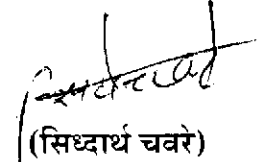 (सिध्दार्थ चवरे)